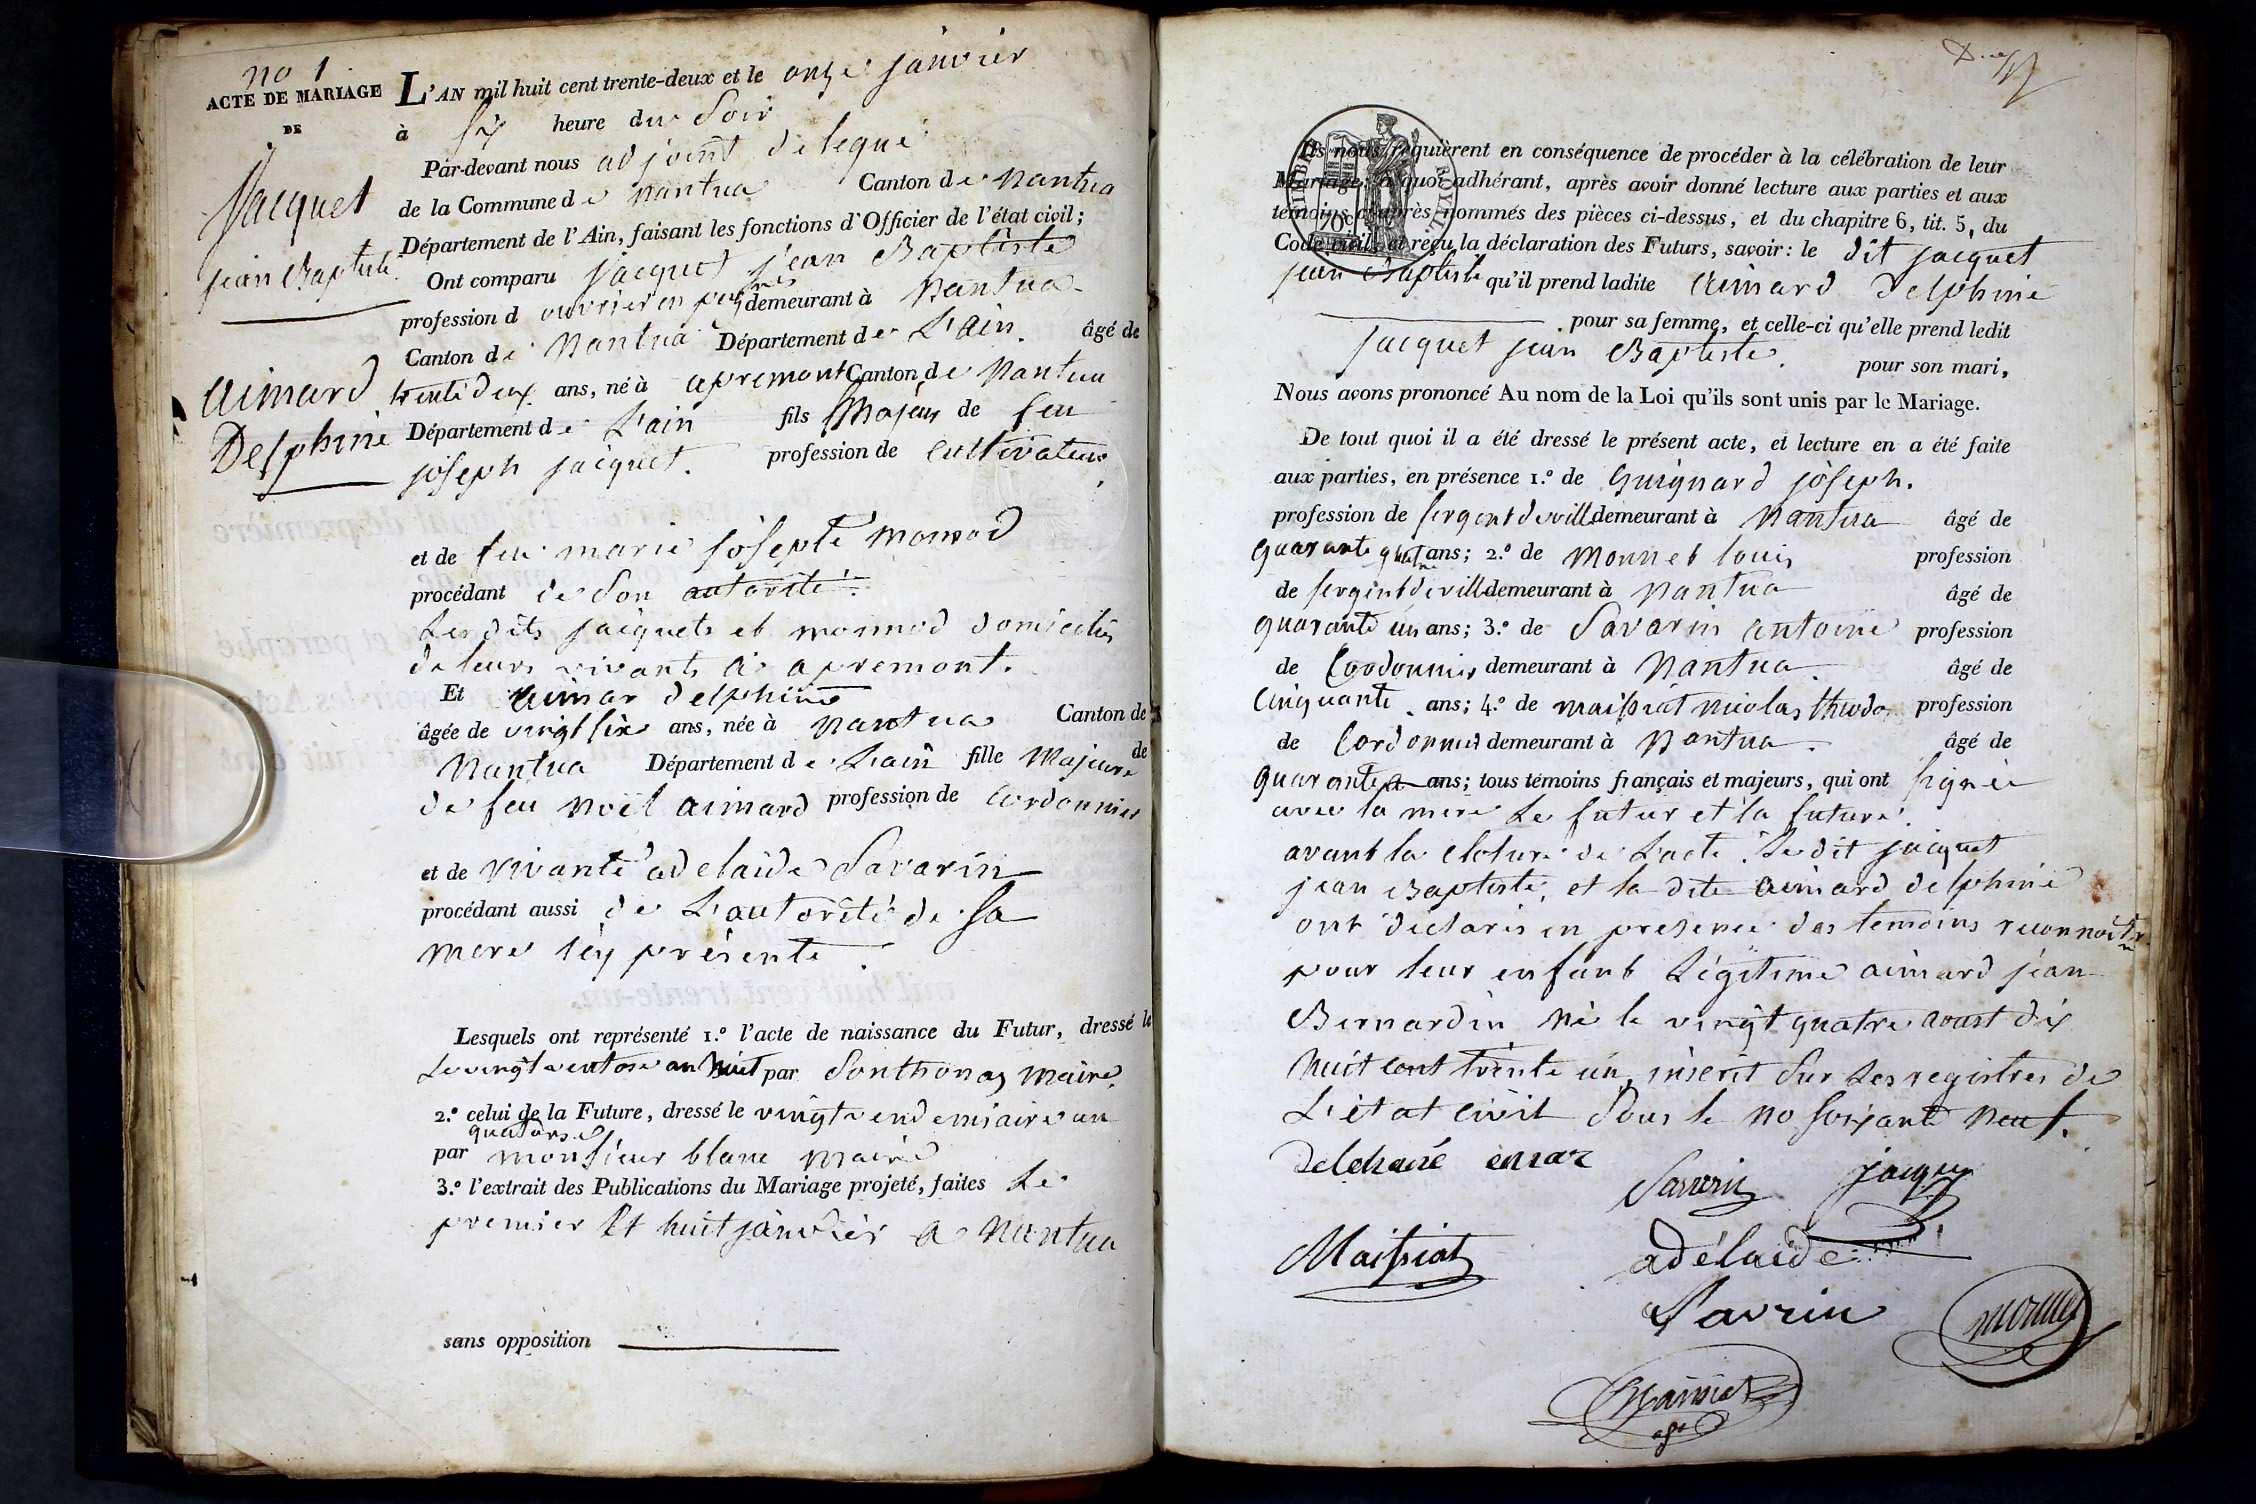 no 1
ACTE DE MARIAGE
DE
Jacquet
jean Baptiste
aimard
Delphine
L'AN mil huit cent trente-deux et le onze janvier
à six heure du Soir
Par-devant nous adjoint delegué
de la Commune de nantua Canton de nantua
Département de l'Ain, faisant les fonctions d'Officier de l'état civil;
Ont comparu jacquet jean Baptiste
profession d ouvrier en peignes demeurant à nantua
Canton de Nantua Département de L'ain. âgé de
trente deux ans, né à apremont Canton de Nantua
Département de L'ain fils Majeur de feu
joseph jacquet. profession de cultivateur,
et de feu marie josephte monnod
procédant de Son autorité.
Les dits jacquets et monnod domiciliés
de leurs vivants à apremont.
Et aimar delphine
âgée de vingt six ans, née à nantua Canton de
Nantua Département de L'ain fille Majeure de
de feu noël aimard profession de cordonnier
et de vivante adelaide Savarin
procédant aussi de L'autorité de sa
mere icy présente.
Lesquels ont représenté 1.º l'acte de naissance du Futur, dressé le
Le vingt ventose an huit par Sonthonas maire,
2.º celui de la Future, dressé le vingt vendemiaire an
quatorse
par monsieur blanc maire
3.º l'extrait des Publications du Mariage projeté, faites Le
premier Et huit janvier a nantua
sans opposition
TIMBRE ROYAL
70c
Ils nous requièrent en conséquence de procéder à la célébration de leur
Mariage; à quoi adhérant, après avoir donné lecture aux parties et aux
témoins ci-après nommés des pièces ci-dessus, et du chapitre 6, tit. 5, du
Code civil, et reçu la déclaration des Futurs, savoir: le dit jacquet
jean Baptiste qu'il prend ladite aimard Delphine
pour sa femme, et celle-ci qu'elle prend ledit
jacquet jean Baptiste. pour son mari,
Nous avons prononcé Au nom de la Loi qu'ils sont unis par le Mariage.
De tout quoi il a été dressé le présent acte, et lecture en a été faite
aux parties, en présence 1.º de Guignard joseph.
profession de sergent de ville demeurant à Nantua âgé de
quarante quatre ans; 2.º de Monnet louis profession
de sergent de ville demeurant à Nantua âgé de
quarante un ans; 3.º de Savarin antoine profession
de Cordonnier demeurant à Nantua. âgé de
Cinquante ans; 4.º de maissiat nicolas theodo profession
de Cordonnier demeurant à Nantua. âgé de
quarante ans; tous témoins français et majeurs, qui ont signée
avec la mere Le futur et la future.
avant la cloture de L'acte. Le dit jacquet
jean Baptiste, et la dite aimard delphine
ont déclarés en presence des temoins reconnoitre
pour leur enfant Légitime aimard jean
Bernardin né le vingt quatre avast dix
huit cent trente un, inscrit Sur Les registres de
L'état civil Sous le no soixante neuf.
Savrin jacquet
Maissiat adélaide
Savrin monnet
Maissiat